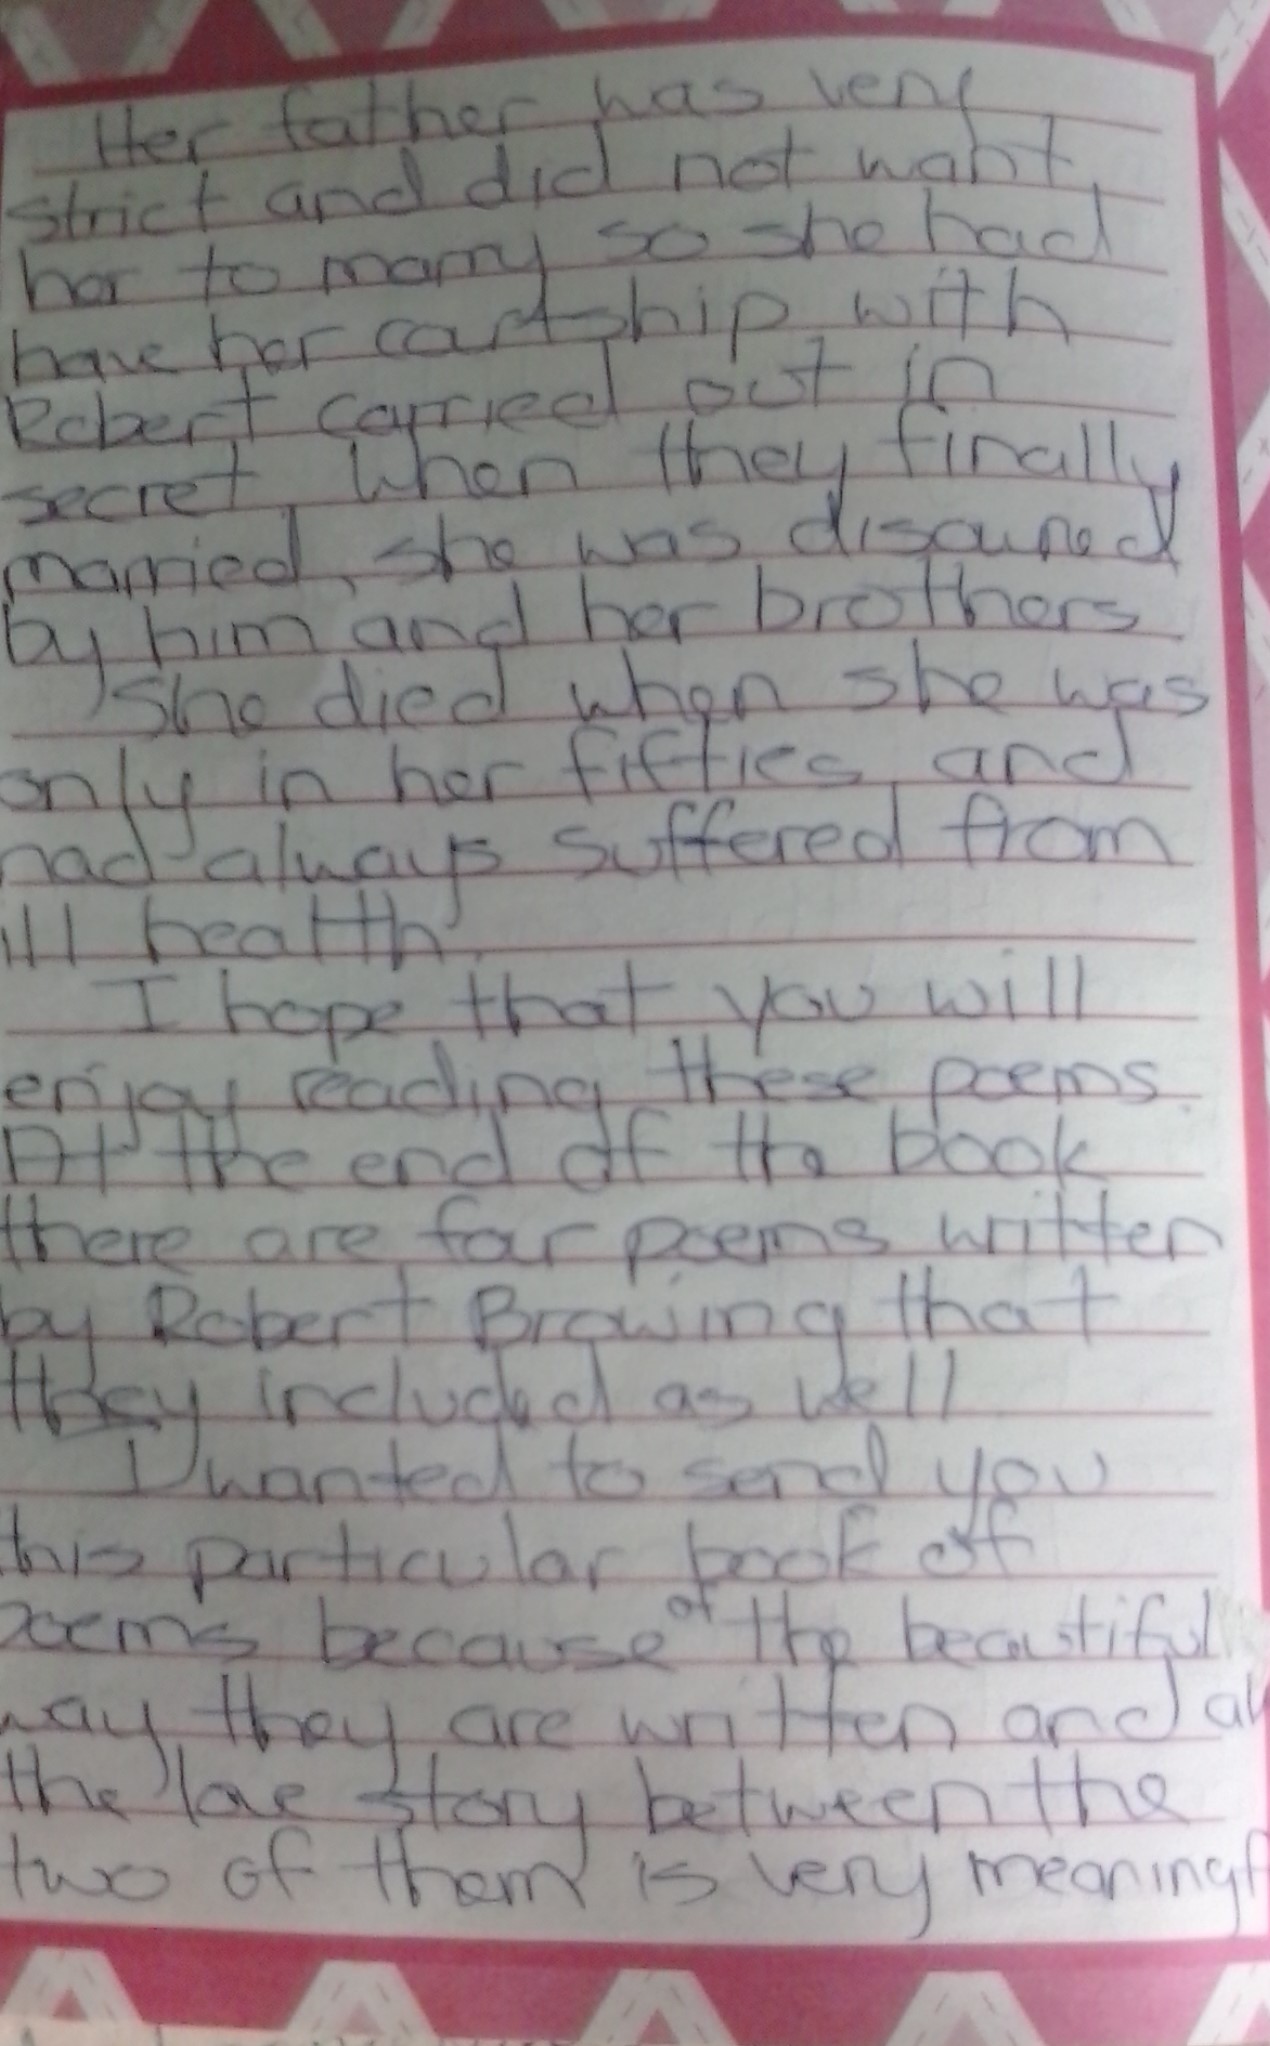 Her father was very
strict and did not want
her to marry so she had
have her cortship with
Robert carried out in
secret. When they finally
married, she was disowned
by him and her brothers.
She died when she was
only in her fifties and
had always suffered from
ill health.
I hope that you will
enjoy reading these poems.
At the end of the book
there are four poems written
by Robert Browing that
they included as well.
I wanted to send you
this particular book of
poems because of the beautiful
way they are written and
the love story between the
two of them is very